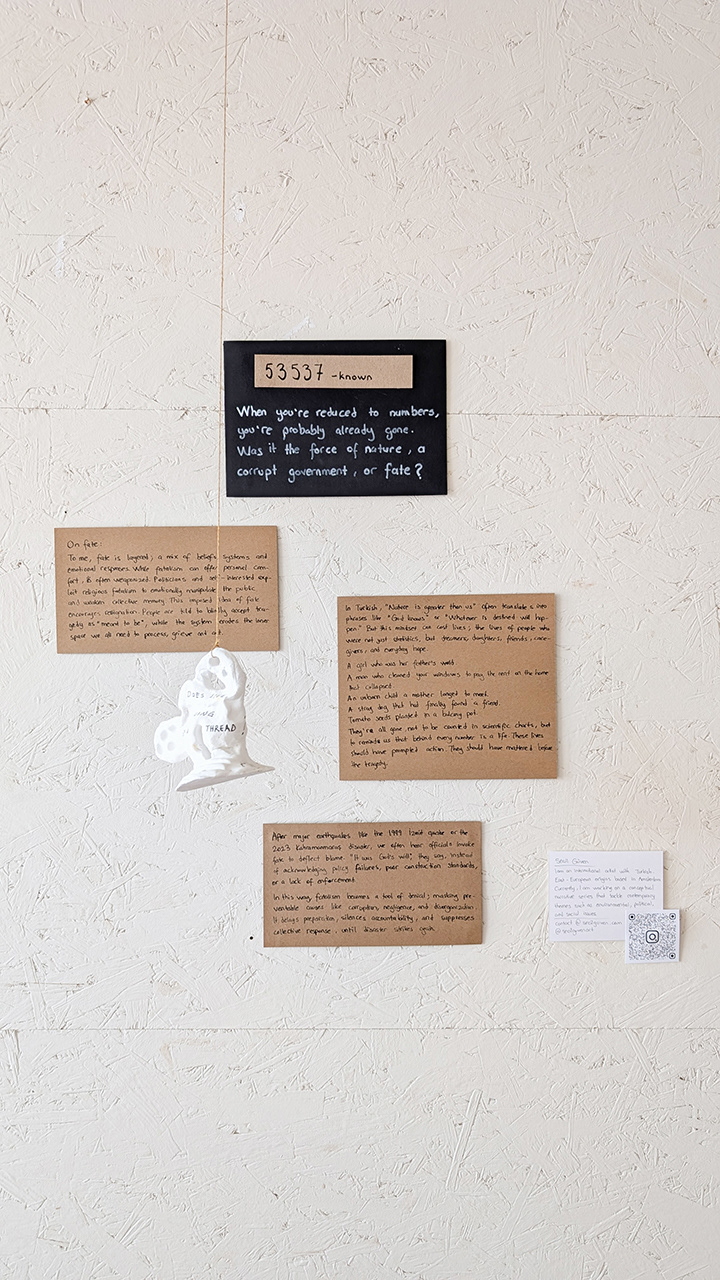 53537 -known
When you're reduced to numbers,
you're probably already gone.
Was it the force of nature, a
corrupt government, or fate?
On fate:
To me, fate is layered; a mix of beliefs systems and
emotional responses. While fatalism can offer personal com-
fort, is often weaponised. Politicians and self-interested exp-
loit religious fatalism to emotionally manipulate the public
and weaken collective memory. This imposed idea of fate
encourages resignation. People are told to blindly accept tra-
gedy as "meant to be", while the system erodes the inner
space we all need to process, grieve and act.
THREAD
In Turkish, "Nature is greater than us" often translates into
phrases like "God knows" or "Whatever is destined will hap-
pen." But this mindset can cost lives; the lives of people who
were not just statistics, but dreamers, daughters, friends, care-
givers, and everyday hope.
A girl who was her father's world.
A man who cleaned your windows to pay the rent on the home
that collapsed.
An unborn child a mother longed to meet.
A stray dog that had finally found a friend.
Tomato seeds planted in a balcony pot.
They're all gone, not to be counted in scientific charts, but
to remind us that behind every number is a life. These lives
should have prompted action. They should have mattered before
the tragedy.
After major earthquakes like the 1999 Izmit quake or the
2023 Kahramanmaras disaster, we often hear officials invoke
fate to deflect blame. "It was God's will", they say, instead
of acknowledging policy failures, poor construction standards,
or a lack of enforcement.
In this way, fatalism becomes a tool of denial; masking pre-
ventable causes like corruption, negligence, and disorganization.
It delays preparation, silences accountability, and suppresses
collective response, until disaster strikes again.
I am an international artist with Turkish,
East-European origins based in Amsterdam.
Currently, I am working on a conceptual
narrative series that tackle contemporary
themes such as environmental, political,
and social issues.